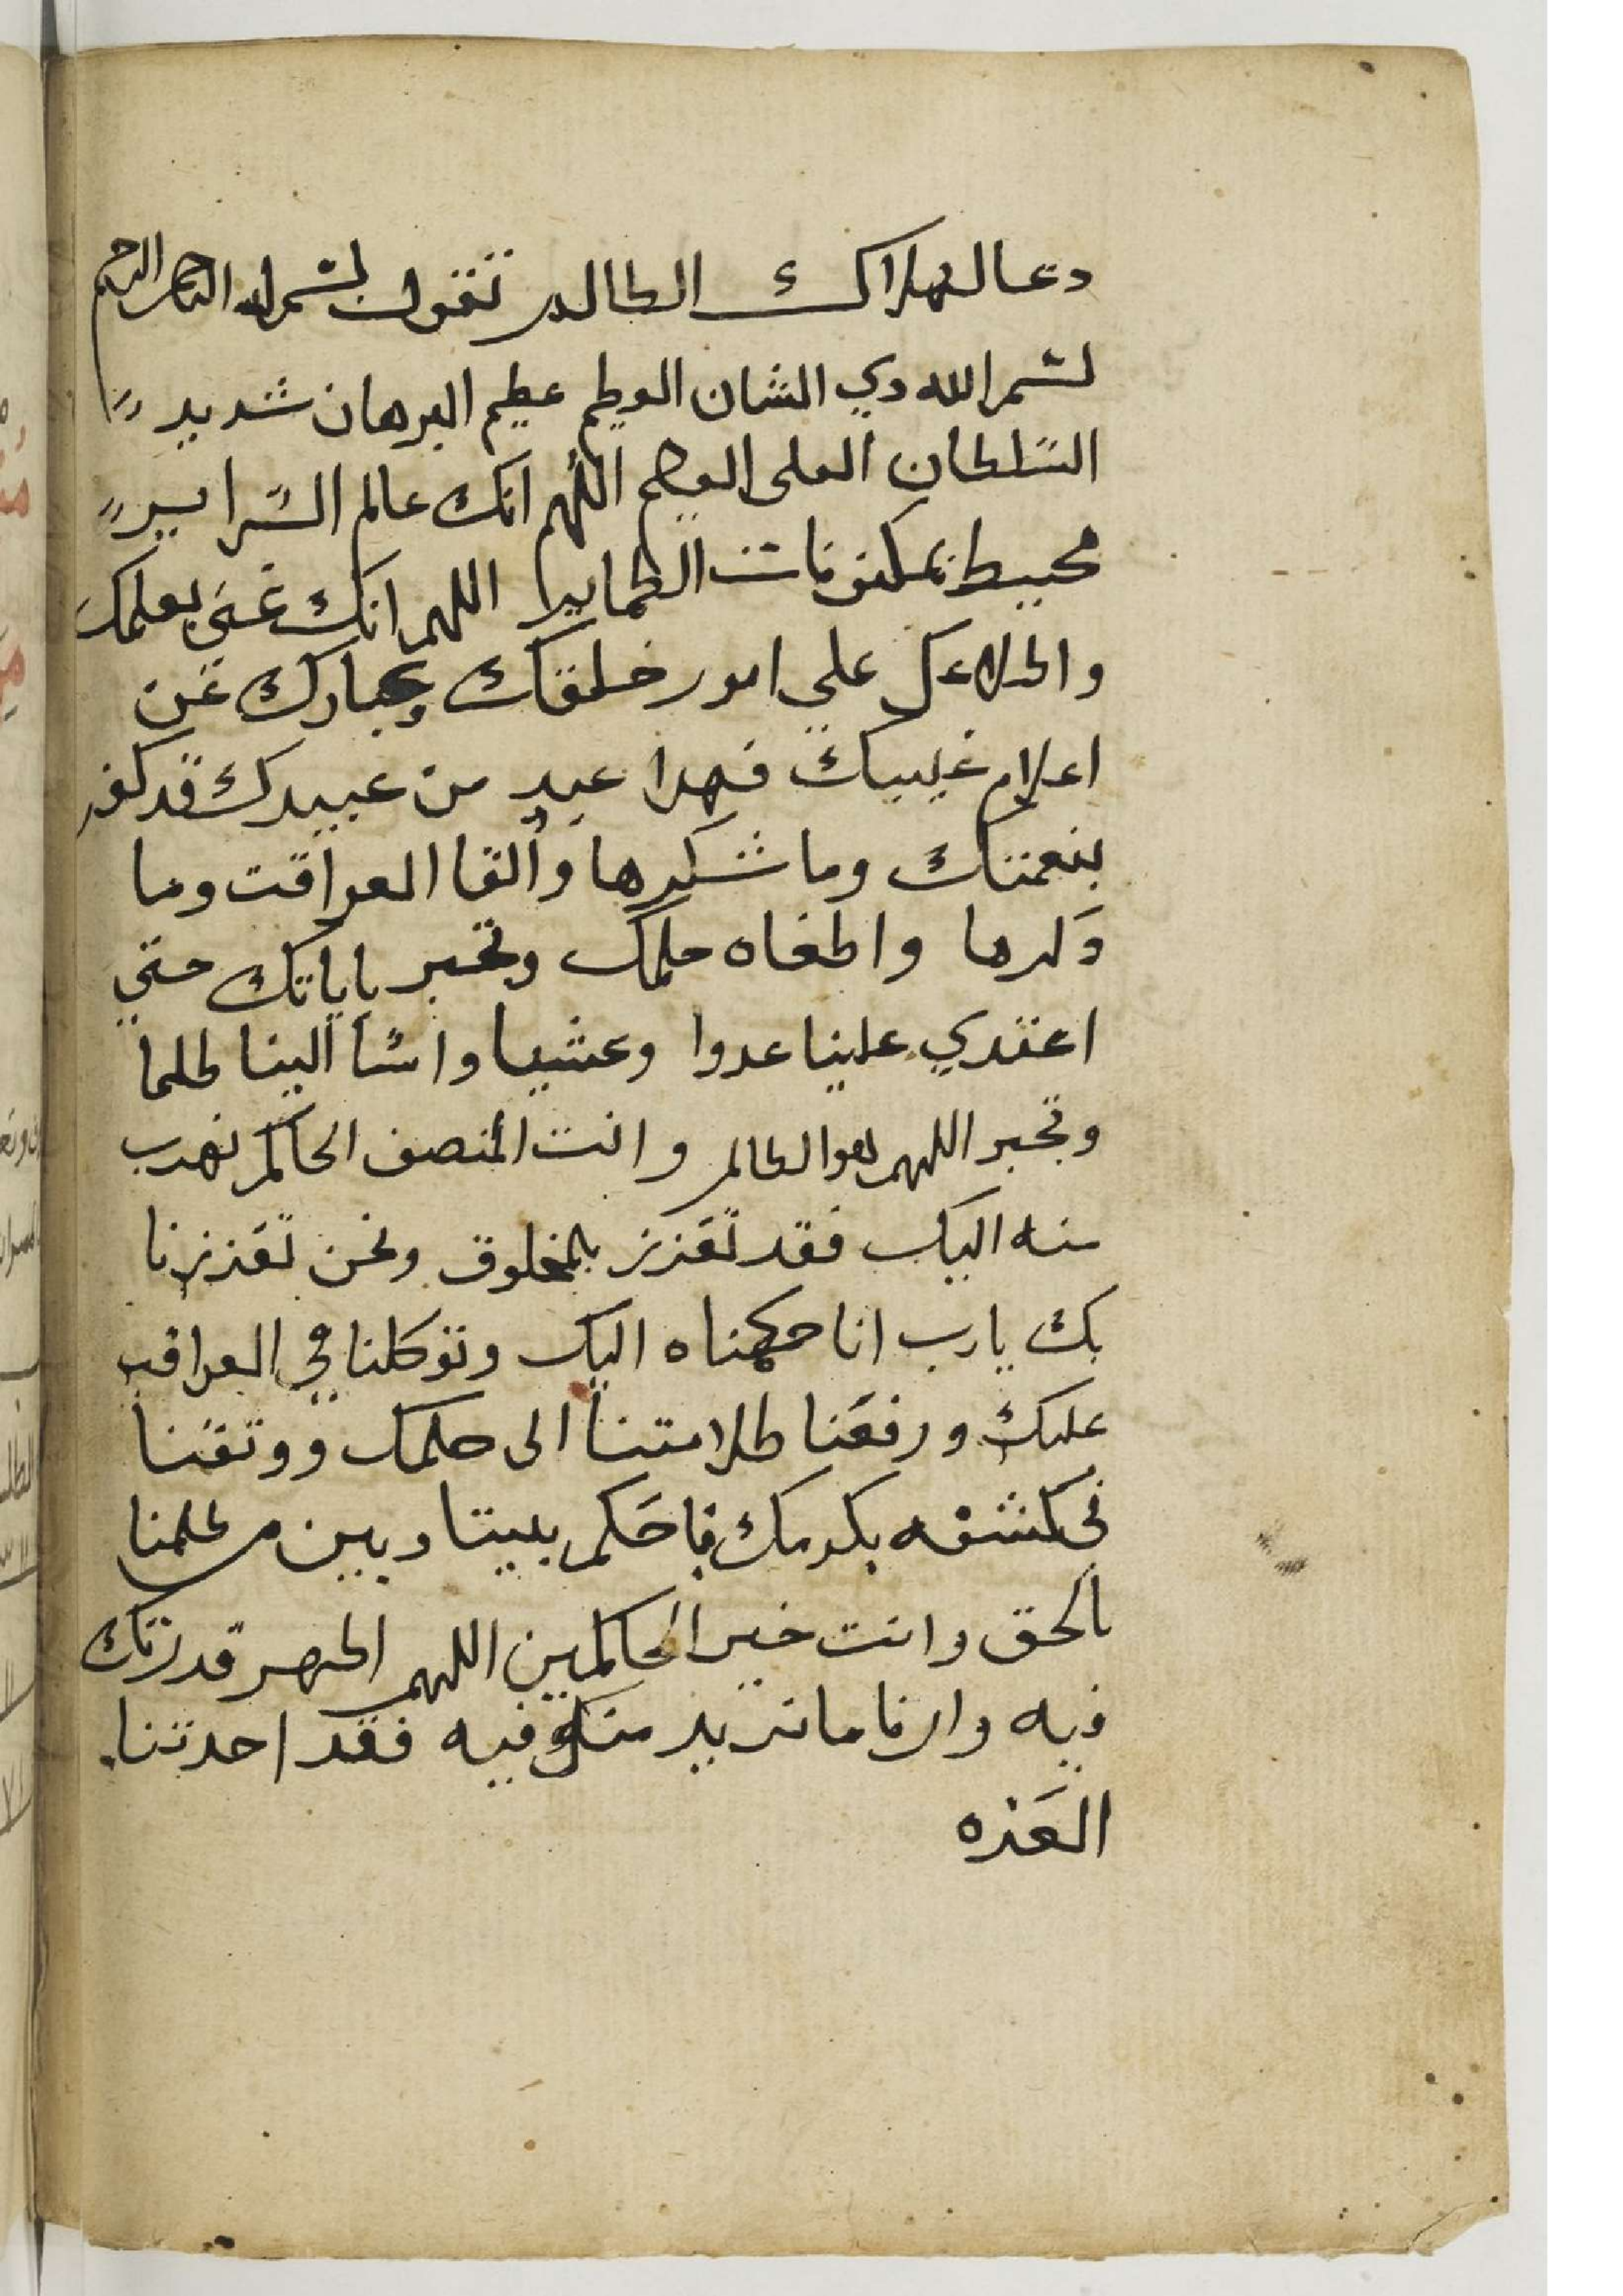 دعا لهلاك الطالم تقول بسم الله الرحمن الرحيم
بسم الله دي الشان العطيم عطيم البرهان شديد
السلطان العلى العطيم اللهم انك عالم السراير
محيط بمكنونات الطماير اللهم انك غني بعلمك
واطلاعك علي امور خلقك وعبادك عن
اعلام غيبك فهدا عبد من عبيدك قد كفر
بنعمتك وما شكرها وألقا العواقب وما
دكرها واطغاه حلمك وتجبر باياتك حتي
اعتدي علينا عدوا وعشيا واسا الينا طلما
وتجبر اللهم هو الطالم وانت المنصف الحاكم نهرب
منه اليك فقد تعزز بالمخلوق ونحن تعززنا
بك يارب انا حكمناه اليك وتوكلنا في العواقب
عليك ورفعنا طلامتنا الى حلمك ووتقنا
في كشفه بكرمك فاحكم بيننا وبين من طلمنا
بالحق وانت خير الحاكمين اللهم اطهر قدرتك
فيه وارنا ما نريد منك فيه فقد احدتنا
العزه